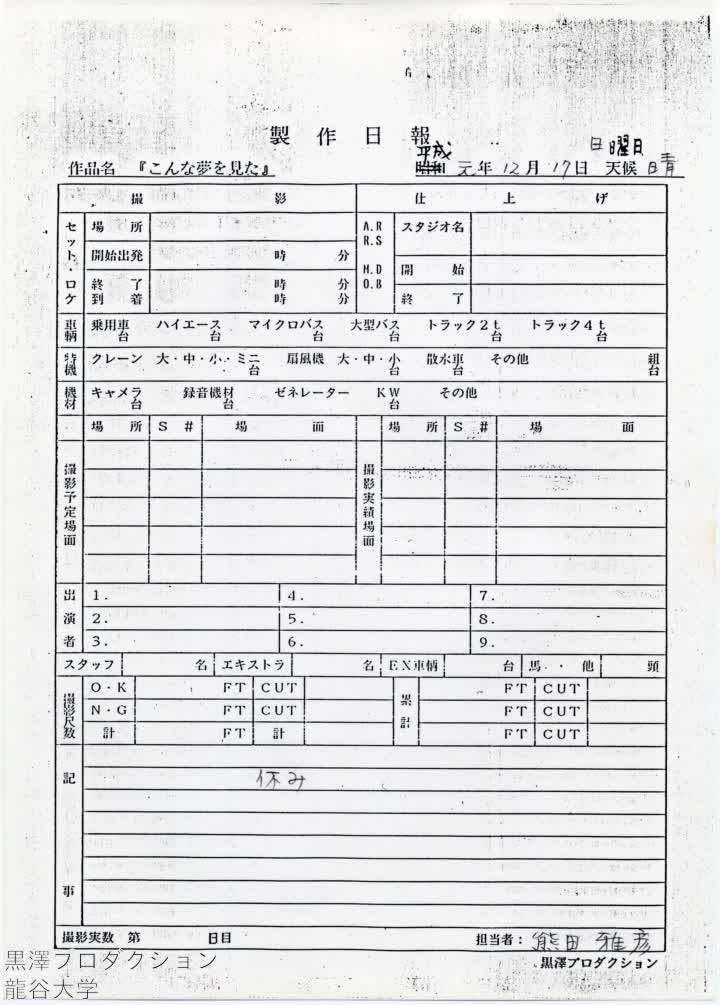 製作日報
日曜日
作品名 『こんな夢を見た』 平成 昭和 元年 12月 17日 天候 晴
撮影 仕上げ
セット・ロケ 場所 A.R R.S スタジオ名
開始出発 時 分 M.D O.B 開始
終了 時 分 終了
到着 時 分
車輌 乗用車 台 ハイエース 台 マイクロバス 台 大型バス 台 トラック2t 台 トラック4t 台
特機 クレーン 大・中・小・ミニ 台 扇風機 大・中・小 台 散水車 台 その他 組 台
機材 キャメラ 台 録音機材 台 ゼネレーター KW 台 その他
撮影予定場面 場所 S# 場面 撮影実績場面 場所 S.# 場面
出演者 1. 4. 7.
2. 5. 8.
3. 6. 9.
スタッフ 名 エキストラ 名 EX車輌 台 馬・他 頭
撮影尺数 O・K FT CUT 累計 FT CUT
N・G FT CUT FT CUT
計 FT 計 FT CUT
記事
休み
撮影実数 第 日目 担当者: 熊田雅彦
黒澤プロダクション
黒澤プロダクション
龍谷大学